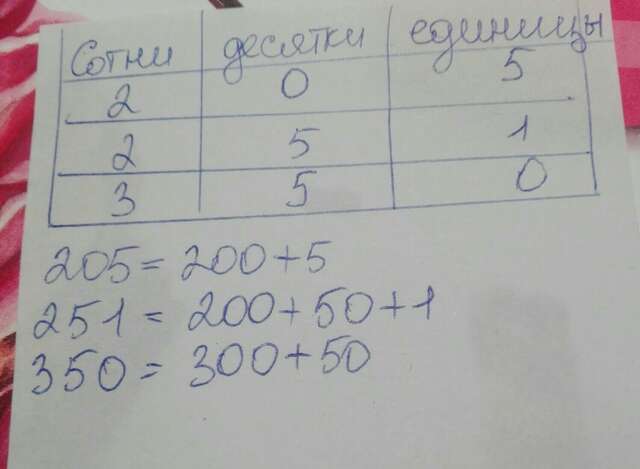 Сотни десятки единицы
2 0 5
2 5 1
3 5 0
205 = 200 + 5
251 = 200 + 50 + 1
350 = 300 + 50